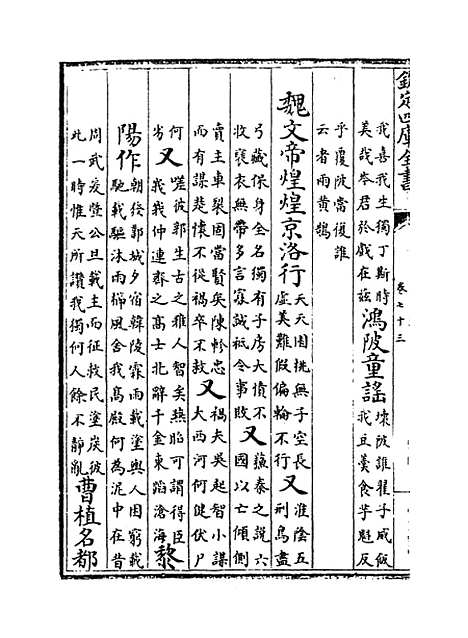 欽定四庫全書
卷七十三
我喜我生獨丁斯時美哉岑君於戲在兹鴻陂童謡壞陂誰翟子威飯我豆羮食芋魁反
乎覆陂當復誰云者兩黄鵠
魏文帝煌煌京洛行夭夭園桃無子空長虛美難假偏輪不行又淮隂五刑鳥盡
弓藏保身全名獨有子房大憤不收褒衣無帶多言寡誡祗令事敗又蘓秦之説六國以亡傾側
賣主車裂固當賢矣陳軫忠而有謀楚懐不從禍卒不救又禍夫吳起智小謀大西河何健伏尸
何劣又嗟彼郭生古之雅人智矣燕昭可謂得臣峩峩仲連齊之髙士北辭千金東蹈滄海黎
陽作朝發鄴城夕宿韓陵霖雨載塗輿人困窮載馳載驅沐雨櫛風舍我髙殿何為泥中在昔
周武爰暨公旦載主而征救民塗炭彼此一時惟天所讚我獨何人餘不靜亂曹植名都